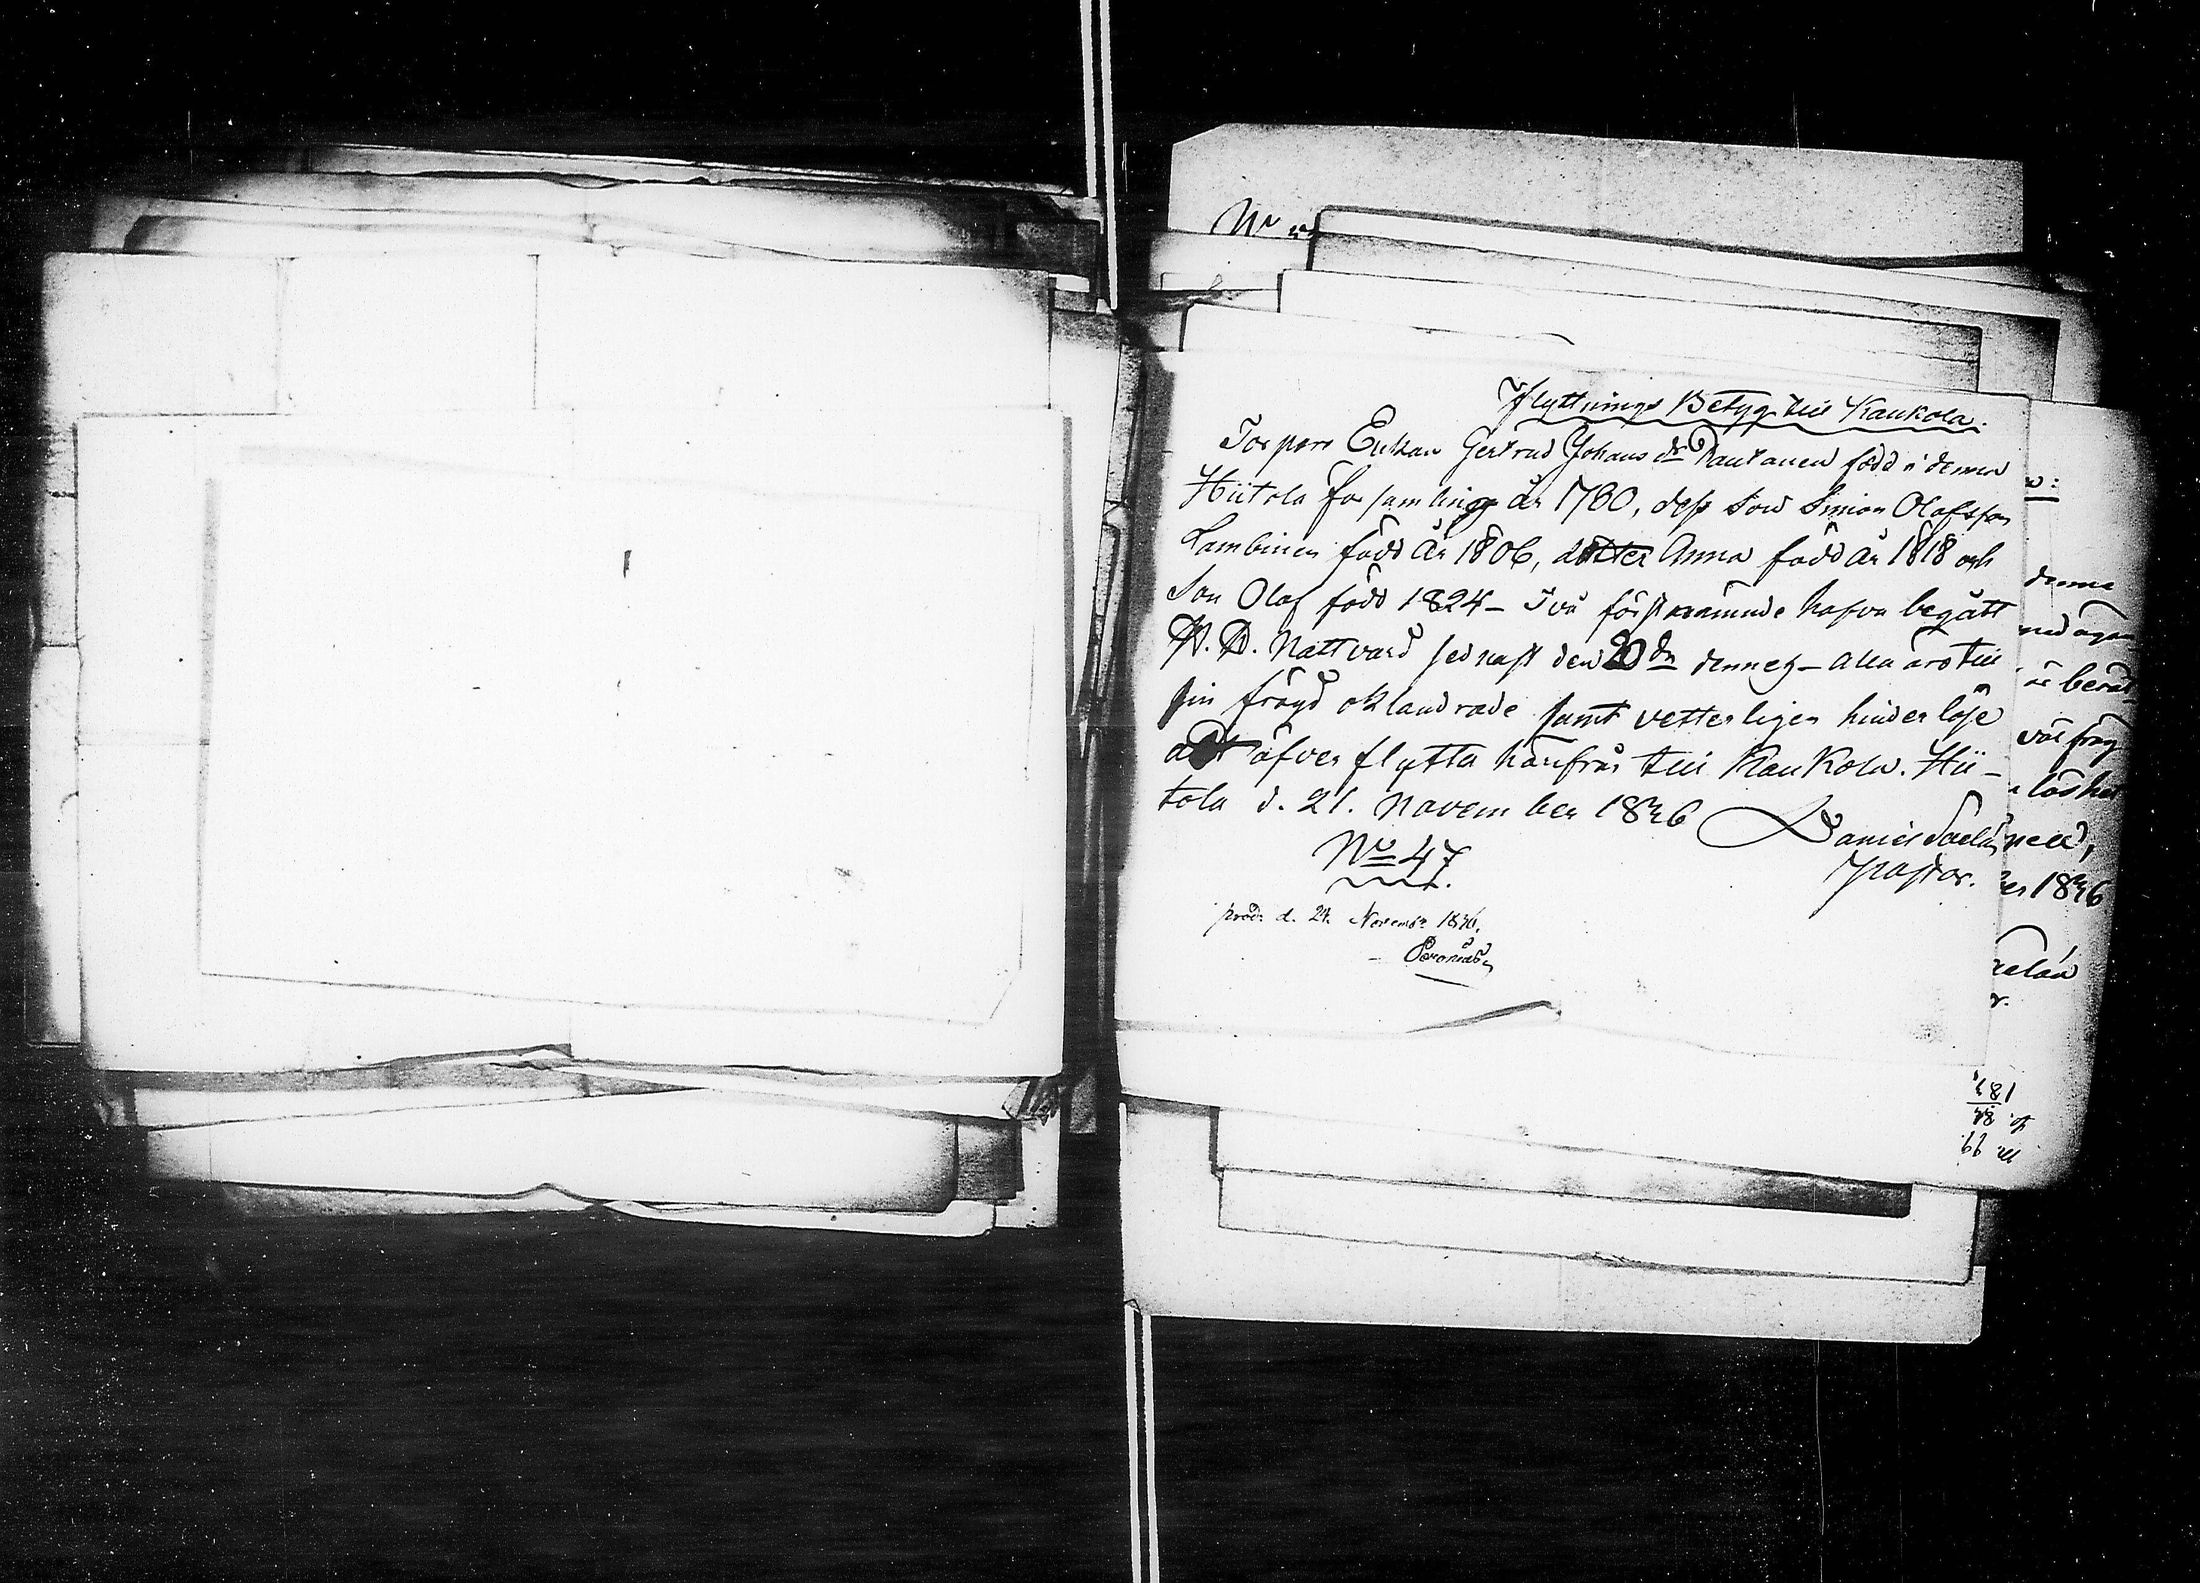 Flyttnings Betyg till Kaukola.
Torpare Enkan Gertrud Johans dr Rautanen född i denna
Hiitola församling år 1760, dess Son Simon Olofsson
Lambinen född år 1806, dotter Anna född år 1818 och
Son Olof född 1824 – Två förstnämnde hafva begått
H. H. Nattvard sednast den 20 dennes – Alla äro till
sin frägd oklandrade samt vetterligen hinderlöse
att öfverflytta härifrån till Kaukola. Hii-
tola d. 21. November 1846
Daniel
Pastor.
No 47
prod: d. 24. Novemb: 1846.
No
denne
ned ägan
är
väl fräg
er 1846